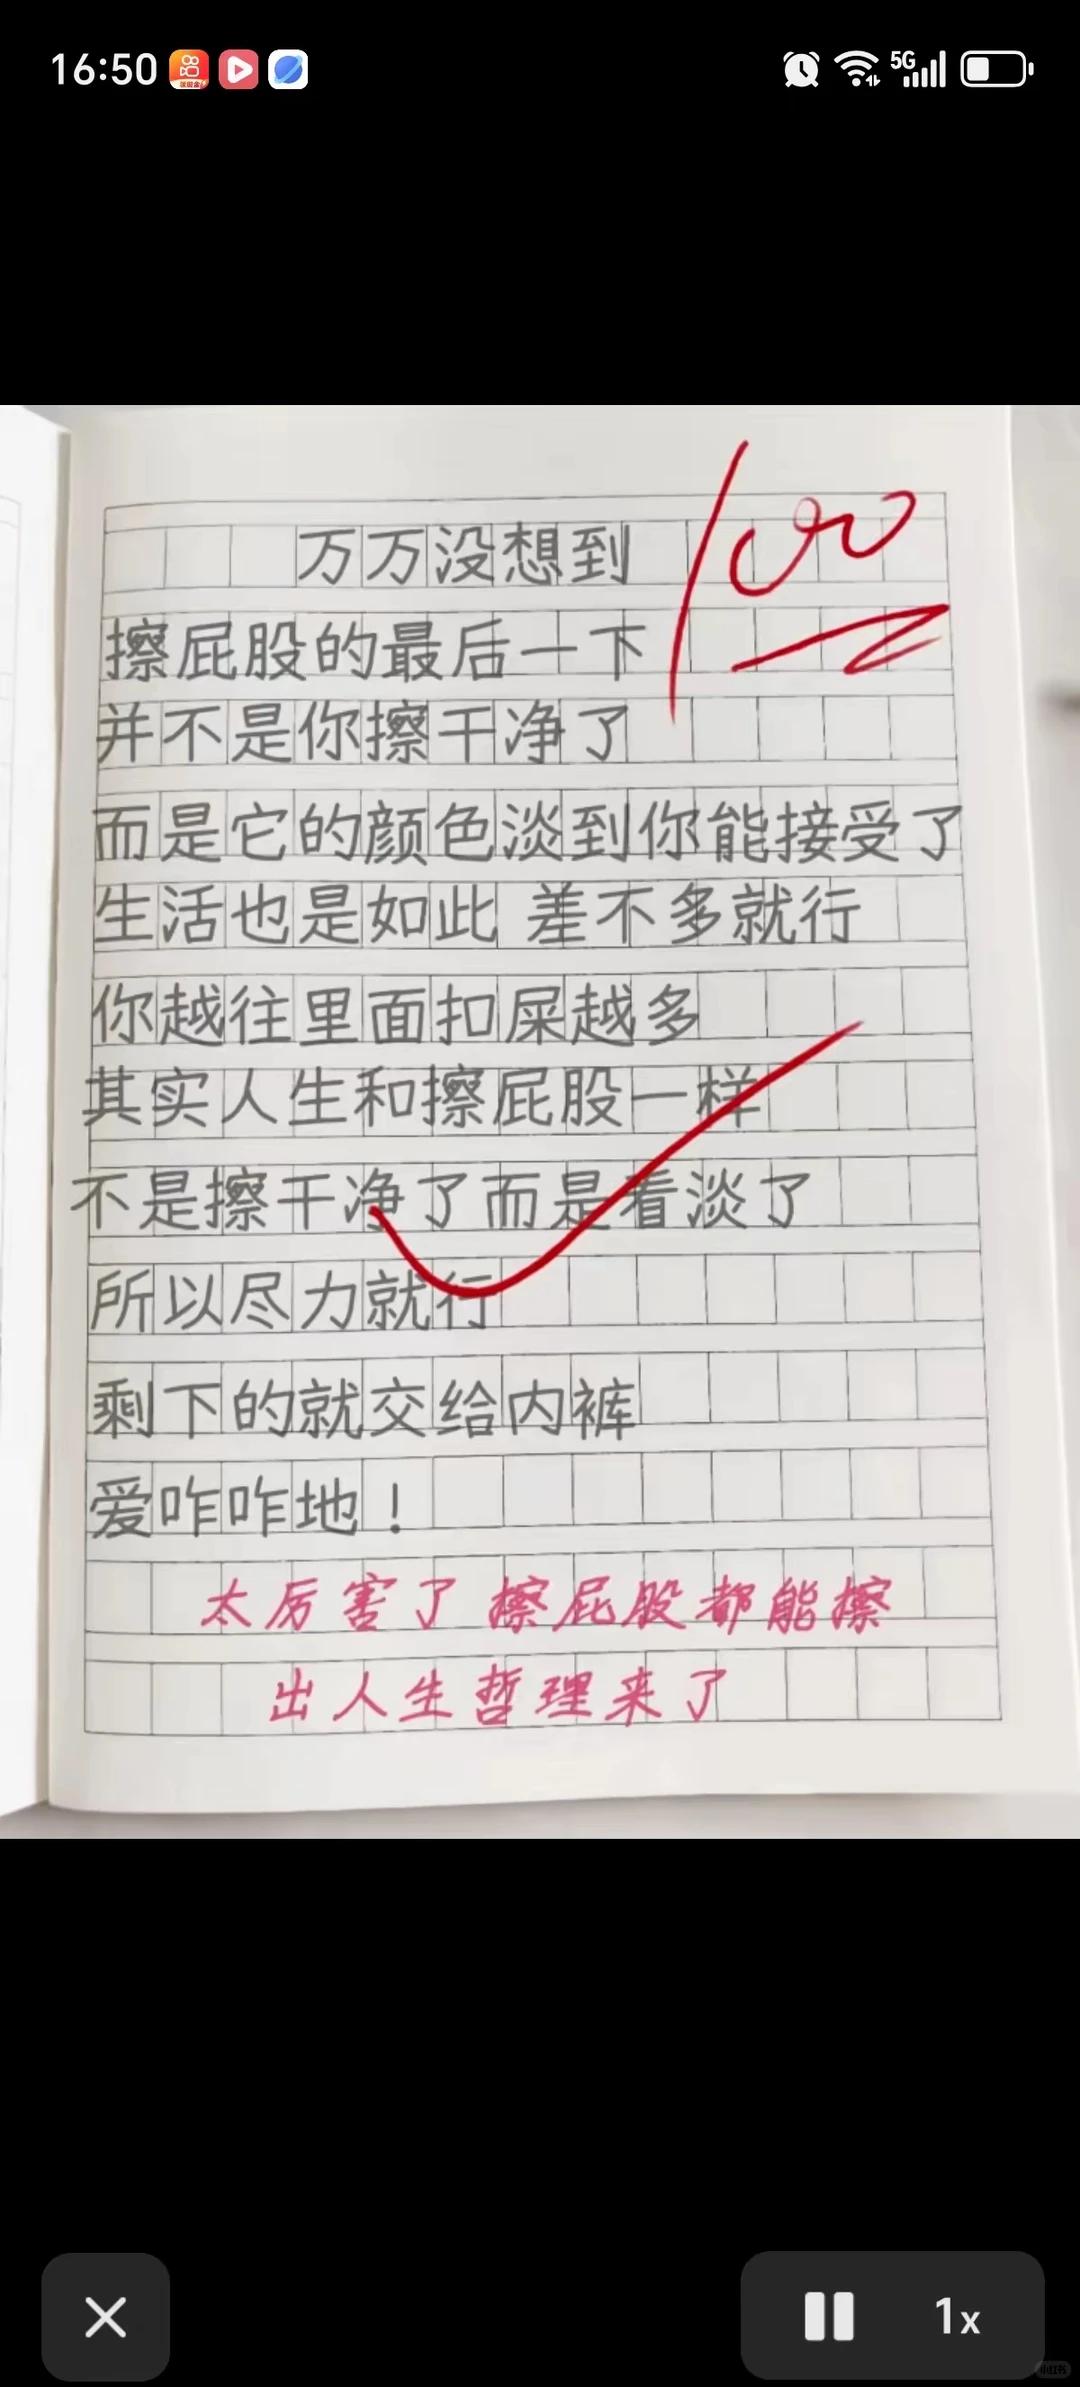 16:50
5G
万万没想到
100
擦屁股的最后一下
并不是你擦干净了
而是它的颜色淡到你能接受了
生活也是如此 差不多就行
你越往里面扣屎越多
其实人生和擦屁股一样
不是擦干净了而是看淡了
所以尽力就行
剩下的就交给内裤
爱咋咋地！
太厉害了 擦屁股都能擦
出人生哲理来了
1x
小红书